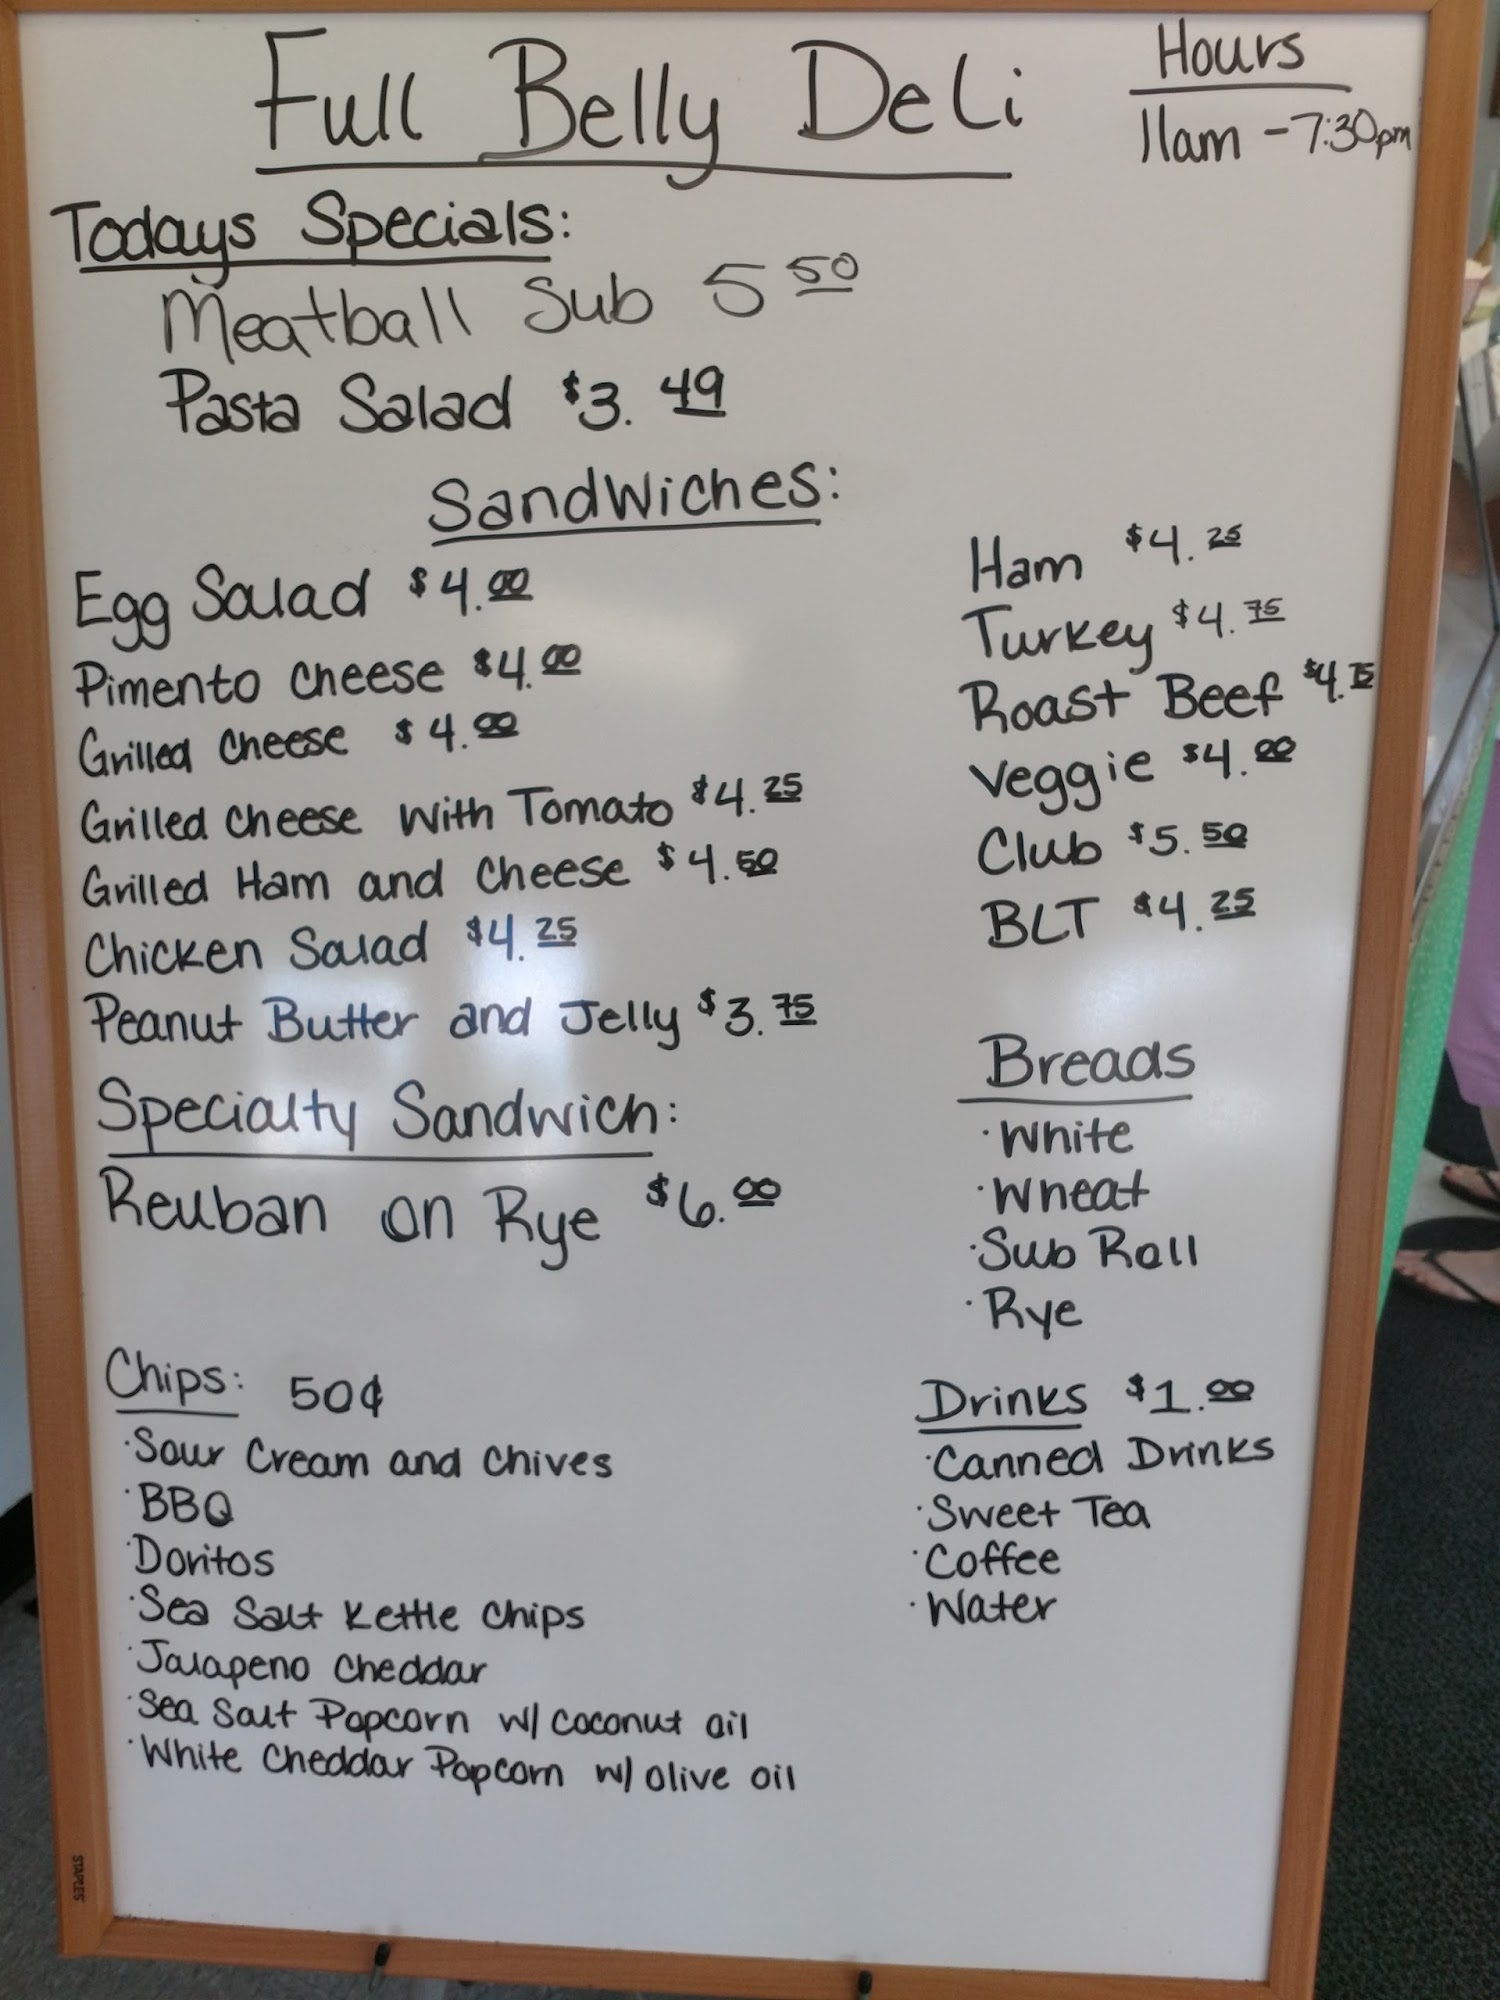 Full Belly Deli
Hours
11am - 7:30pm
Todays Specials:
Meatball Sub 5 50
Pasta Salad $3. 49
Sandwiches:
Egg Salad $4.00
Pimento Cheese $4.00
Grilled Cheese $4.00
Grilled Cheese With Tomato $4.25
Grilled Ham and Cheese $4.50
Chicken Salad $4.25
Peanut Butter and Jelly $3.75
Ham $4.25
Turkey $4.75
Roast Beef $4.75
Veggie $4.00
Club $5.50
BLT $4.25
Specialty Sandwich:
Reuban on Rye $6.00
Breads
· White
· Wheat
· Sub Roll
· Rye
Chips: 50¢
· Sour Cream and Chives
· BBQ
· Doritos
· Sea Salt Kettle Chips
· Jalapeno Cheddar
· Sea Salt Popcorn w/ coconut oil
· White Cheddar Popcorn w/ olive oil
Drinks $1.00
· Canned Drinks
· Sweet Tea
· Coffee
· Water
STAPLES